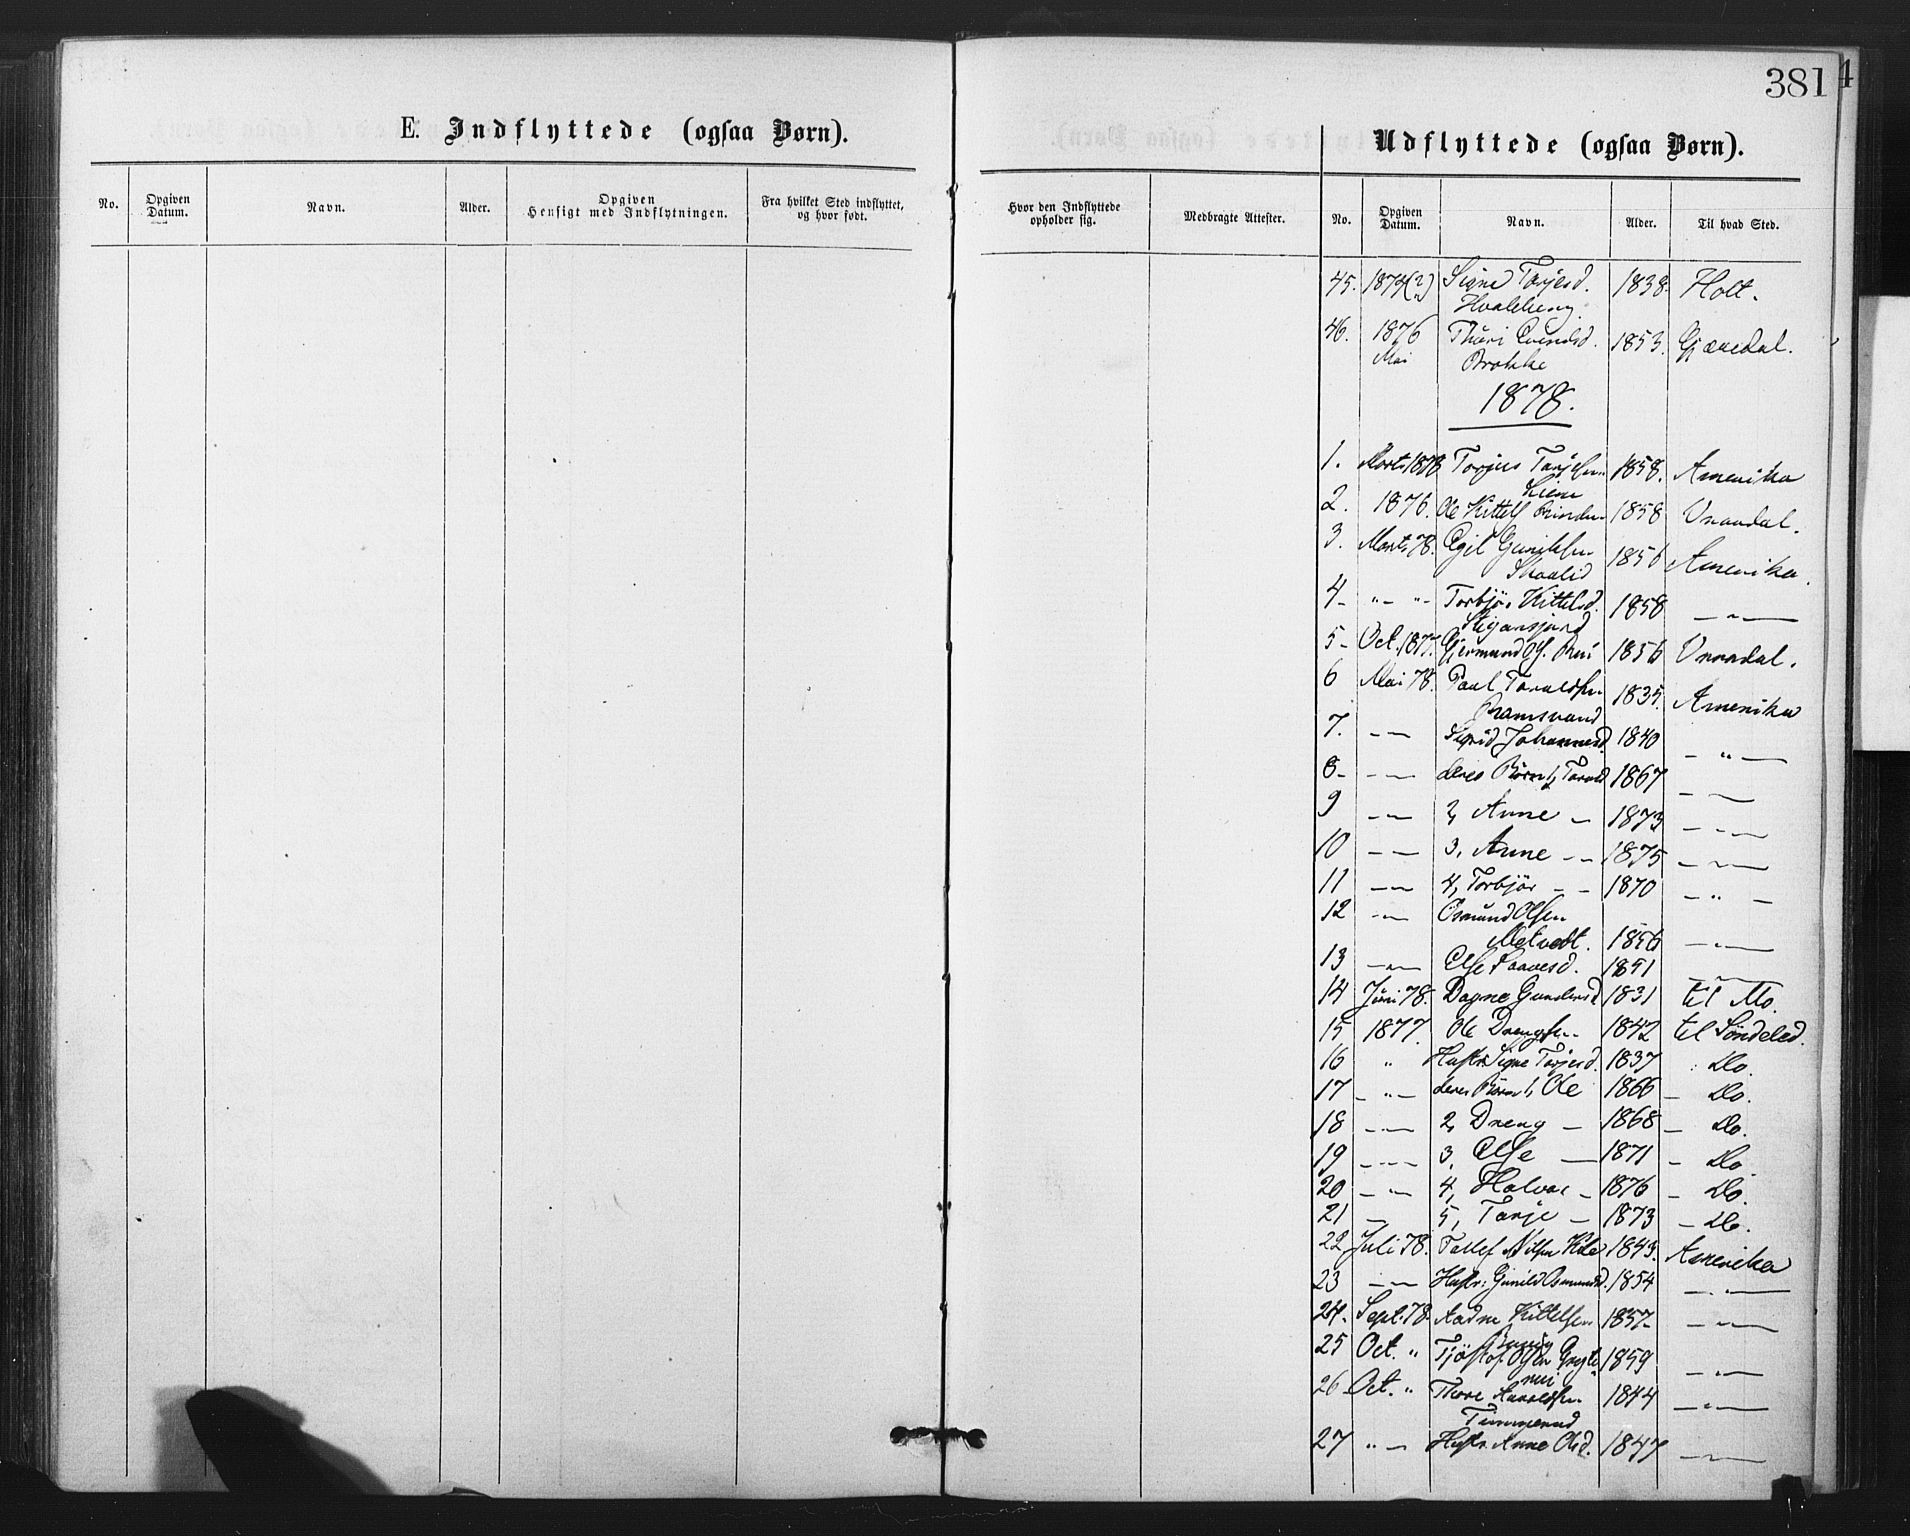 381
E. Indflyttede (ogsaa Børn).
Udflyttede (ogsaa Børn).
No. Opgiven Datum. Navn. Alder. Opgiven Hensigt med Indflytningen. Fra hvilket Sted indflyttet, og hvor født. Hvor den Indflyttede opholder sig. Medbragte Attester. No. Opgiven Datum. Navn. Alder. Til hvad Sted.
45. 1874(?) Signe Tarjesd. 1838. Holt.
46. 1876 Thuri Evindsd. 1853.
Mai Brokke
1878.
1. Marts 1878 Torjus Tarjesen 1858. Amerika
Liene
2. 1876. Ole Kittels 1858 Vraadal.
3. Marts 78. Egil Gunilssen 1856 Amerika.
Skaalid
4- "- "- Torbjør Kittelsd. 1858 - " -
5- Oct. 1877. Gjermund Ols. Rui 1856 Vraadal.
6 Mai 78. Paul Taraldsen 1835. Amerika
Ramsvand
7. - - Sigrid Johannesd. 1840 - " -
8- - - deres Børn 1, Tarald 1867 - -
9 - - 2, Anne - 1873 - " -
10 - - 3, Anne - - 1875 - " -
11 - - 4, Torbjør - - 1870 - " -
12 - - Osmund Olsen
Metvedt. 1856 - " -
13 - " - Else Saavesd. 1851 - -
14 Juni 78. Dagne Gundersd 1831 til Mo.
15 1877. Ole Drengsen 1842 til Søndeled.
16 " Hustr. Signe Tarjesd. 1837 " Do.
17 - " - deres Børn 1, Ole 1866 - Do.
18 - - 2, Dreng - 1868 - Do.
19 - - 3, Else - 1871 - Do.
20 - " - 4, Halvor - 1876 - Do.
21 - 5, Tarje - 1873 - Do.
22 Juli 78. Tallef Nilsen Kile 1843. Amerika
23 - - Hustr: Gunild Osmundsd. 1854 - " -
24. Sept. 78. Aadne Kittelsen 1857- - " -
25 Oct. " Tjøstof Olsen 1859 - " -
26 Oct. " Thore Haraldsen 1844 - " -
27 " - Hustr. Anne Olsd. 1847 - " -